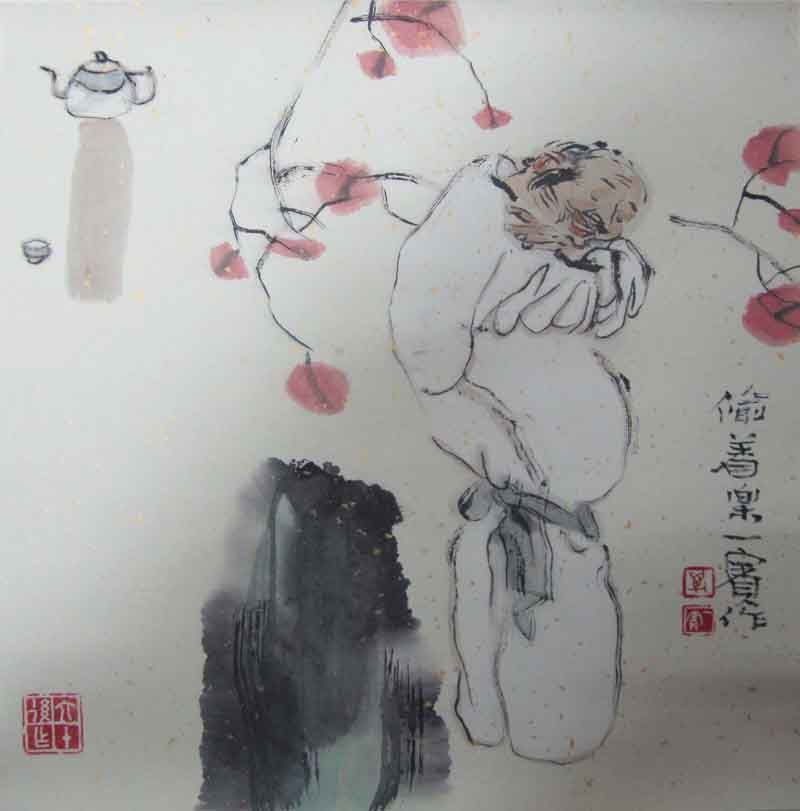 偷着楽一賓作
六十
後作